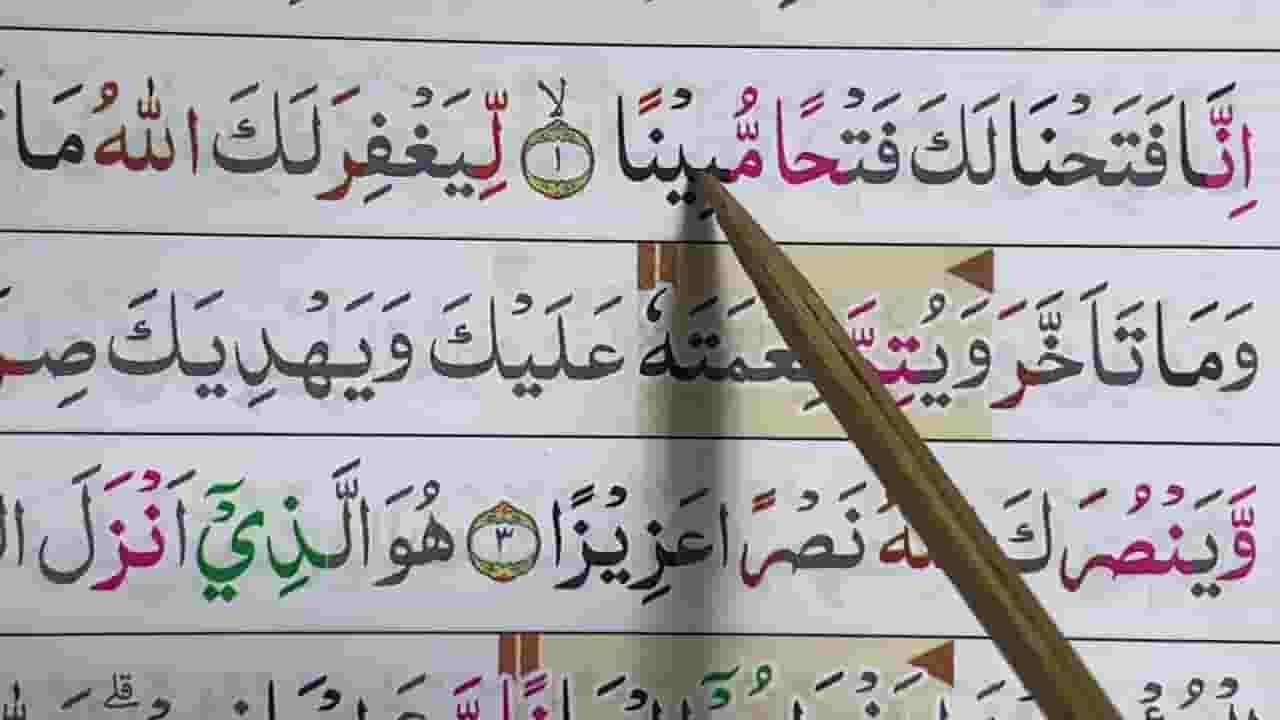 اِنَّا فَتَحْنَا لَكَ فَتْحًا مُّبِيْنًا ۙ﴿۱﴾ لِّيَغْفِرَ لَكَ اللّٰهُ مَا
وَمَا تَاَخَّرَ وَيُتِمَّ نِعْمَتَهٗ عَلَيْكَ وَيَهْدِيَكَ
وَّيَنْصُرَكَ اللّٰهُ نَصْرًا عَزِيْزًا ﴿۳﴾ هُوَ الَّذِيْۤ اَنْزَلَ